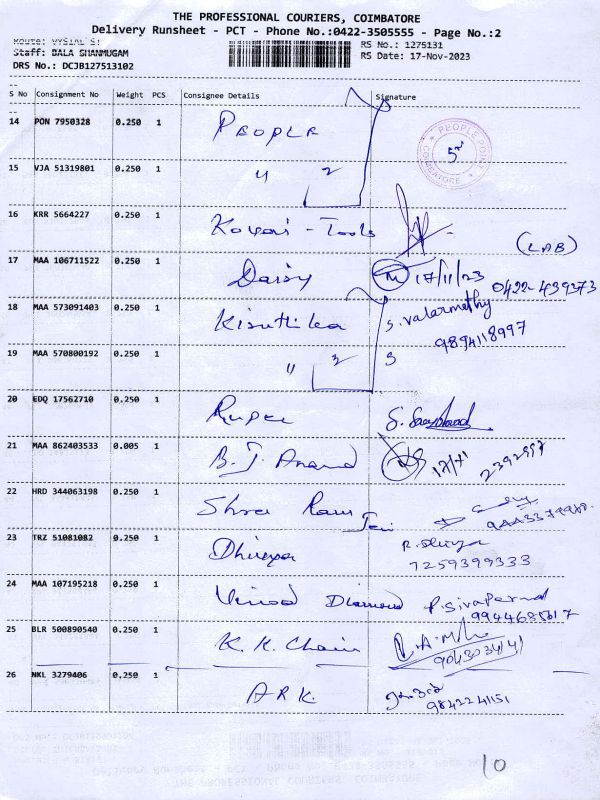 THE PROFESSIONAL COURIERS, COIMBATORE
Delivery Runsheet - PCT - Phone No.:0422-3505555 - Page No.:2
Staff: BALA SHANMUGAM
RS No.: 1275131
DRS No.: DCJB127513102
RS Date: 17-Nov-2023
S No Consignment No Weight PCS Consignee Details Signature
14 PON 7950328 0.250 1 PEOPLE
PEOPLE POINT COIMBATORE
15 VJA 51319801 0.250 1 " 2
16 KRR 5664227 0.250 1 Kovai - Tools
(LAB)
17 MAA 106711522 0.250 1 Daisy 17/11/23 0422-439373
18 MAA 573091403 0.250 1 S. Valarmathy
9894118997
19 MAA 570800192 0.250 1 " 3 S
20 EDQ 17562710 0.250 1 Rupa
21 MAA 862403533 0.005 1 B. J. Anand 17/11 2392997
22 HRD 344063198 0.250 1 Shree Ram
23 TRZ 51081082 0.250 1
7259399333
24 MAA 107195218 0.250 1 Vinod Diamond P. Sivaperumal
25 BLR 500890540 0.250 1 K. K. Chain
26 NKL 3279406 0.250 1 ARK.
9842241151
10